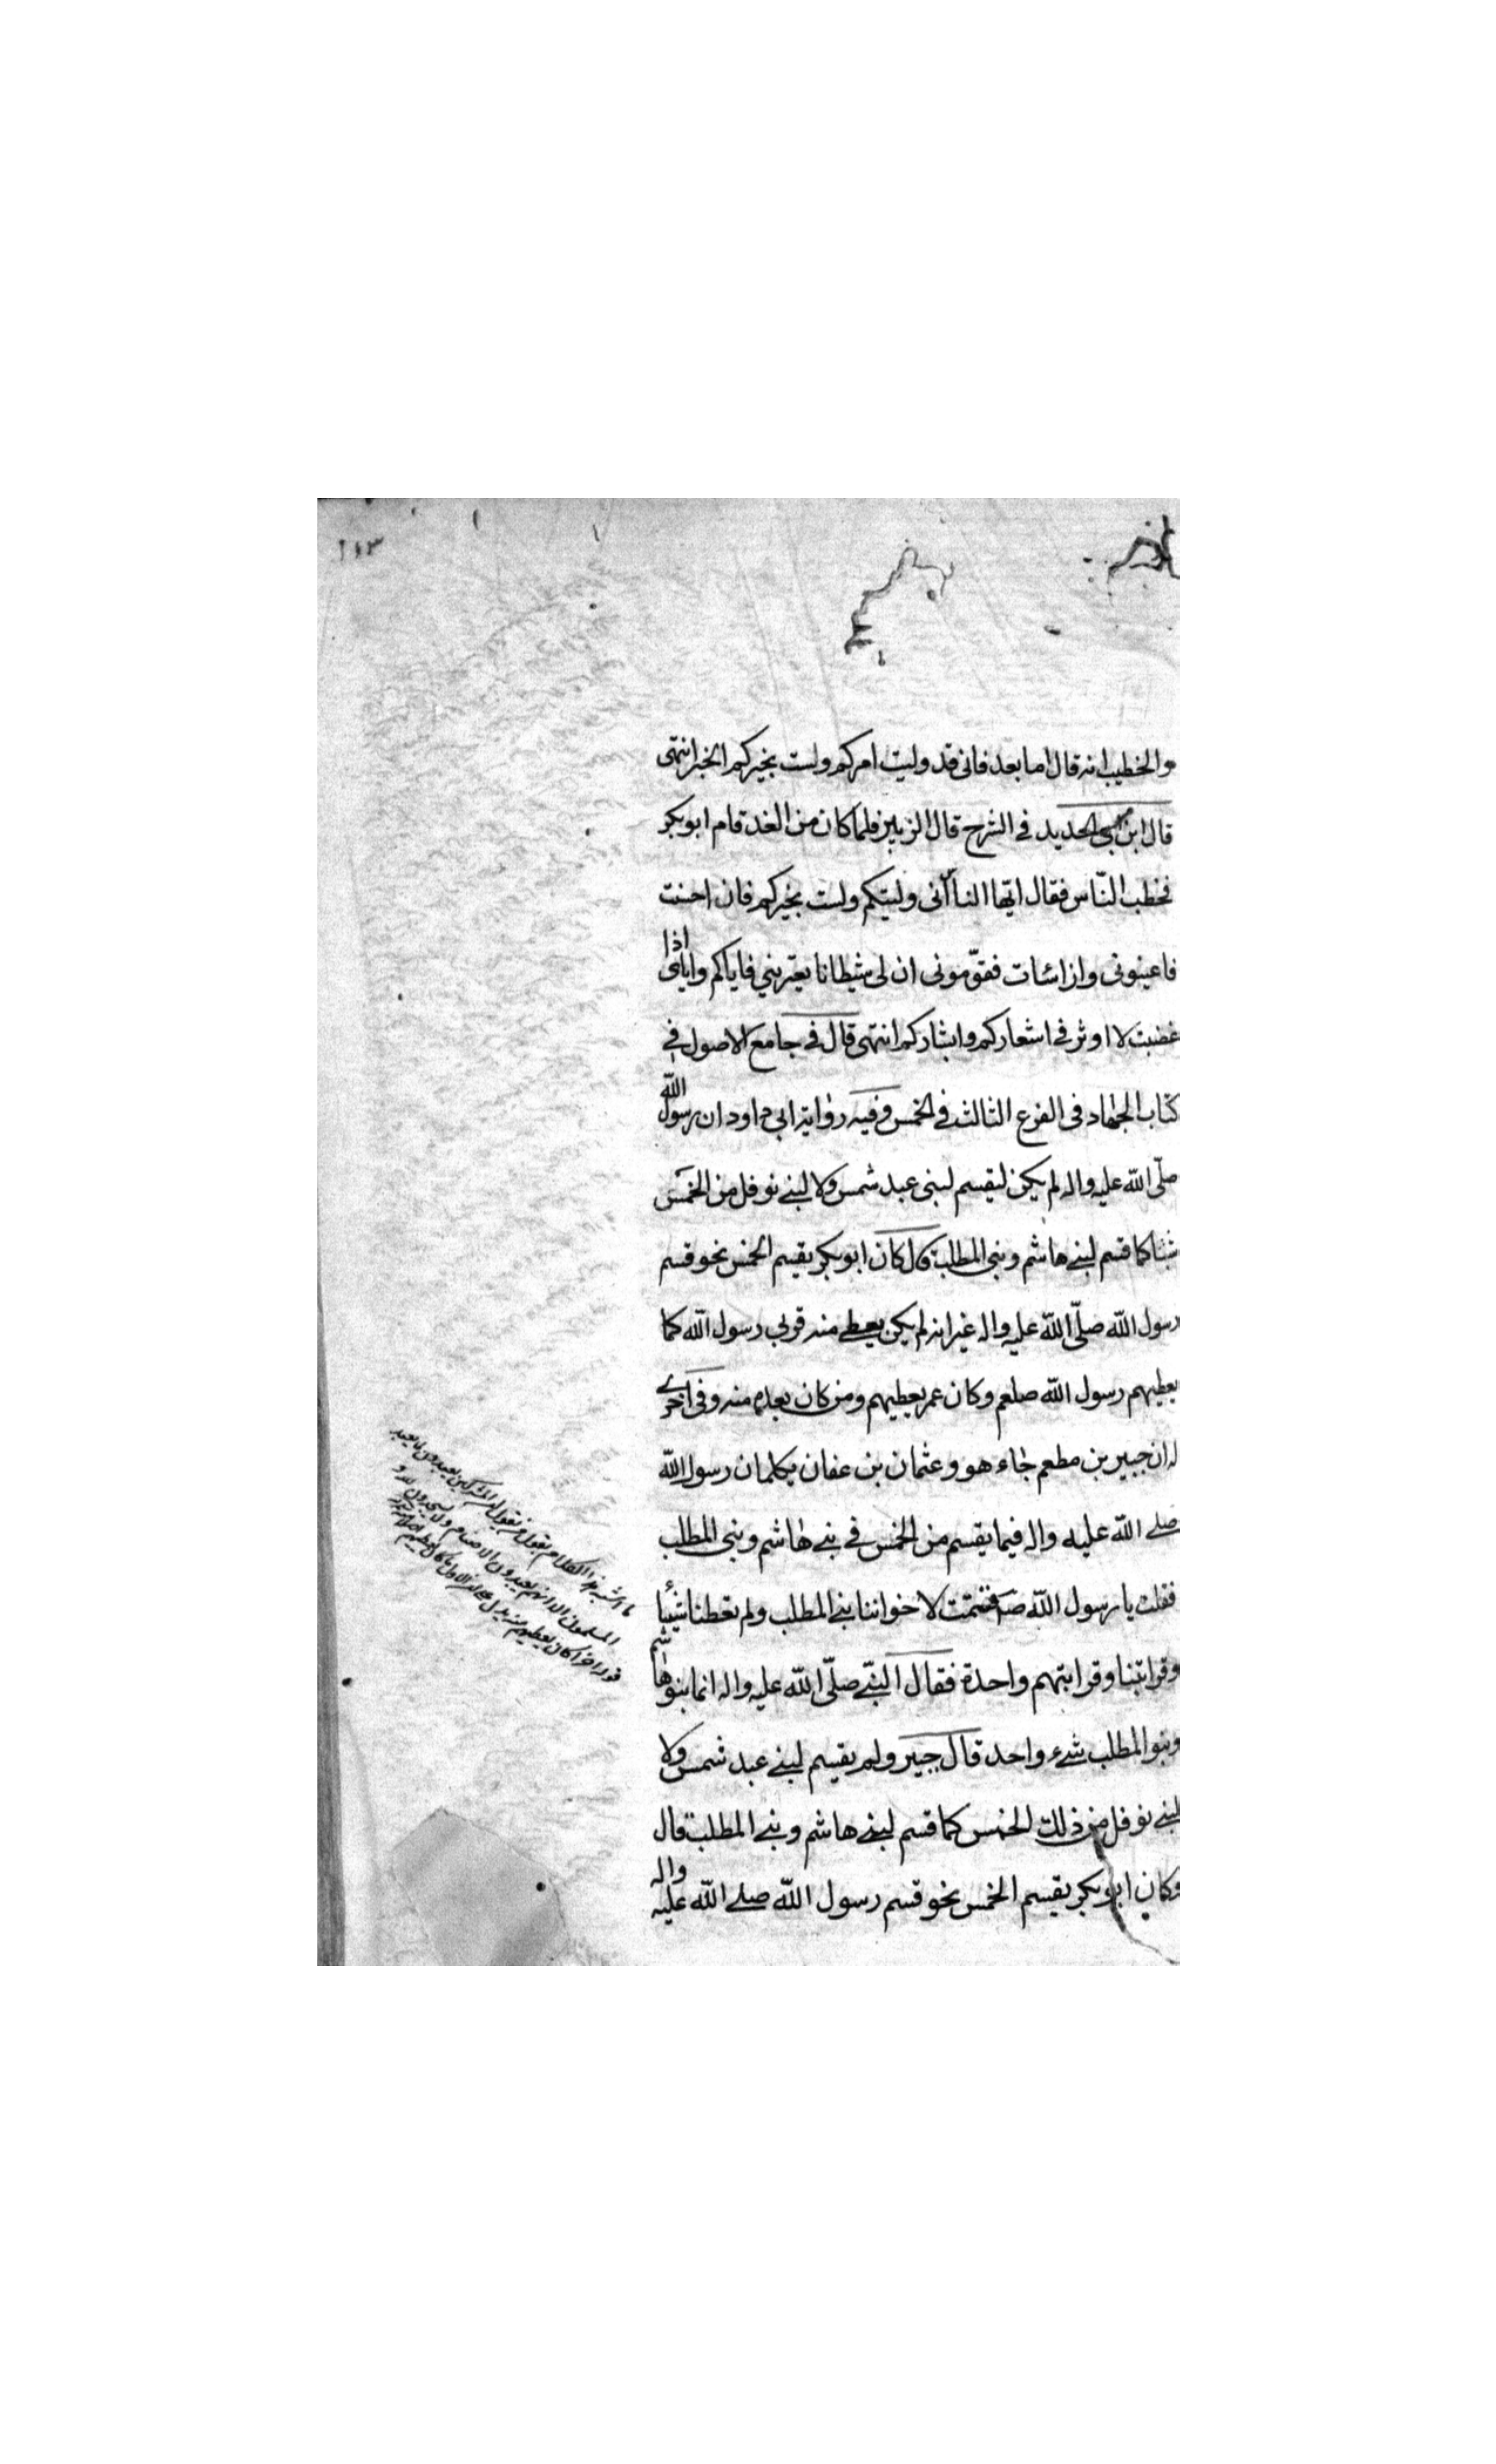 ١١٣
والخطيب انه قال اما بعد فانى قد وليت امركم ولست بخيركم الخبر انتهى
قال ابن ابى الحديد فى الشرح قال الزبير فلما كان من الغد قام ابو بكر
فخطب النّاس فقال ايّها الناس انى وليتكم ولست بخيركم فان احسنت
فاعينونى وان اسات فقوّمونى ان لى شيطانا يعترينى فاياكم واياى اذا
غضبت لا اوثر فى اشعاركم وابشاركم انتهى قال فى جامع الاصول فى
كتاب الجهاد فى الفرع الثالث فى الخمس وفيه رواية ابى داود ان رسول الله
صلّى الله عليه واله لم يكن ليقسم لبنى عبد شمس ولا لبنى نوفل من الخمس
شيئا كما قسم لبنى هاشم وبنى المطلب قال كان ابو بكر يقسم الخمس نحو قسم
رسول الله صلّى الله عليه واله غير انه لم يكن يعطى منه قربى رسول الله كما
يعطيهم رسول الله صلعم وكان عمر يعطيهم ومن كان بعده منه وفى اخرى
له ان جبير بن مطعم جاء هو وعثمان بن عفان يكلمان رسول الله
صلى الله عليه واله فيما يقسم من الخمس فى بنى هاشم وبنى المطلب
فقلت يا رسول الله ص قسمت لاخواننا بنى المطلب ولم تعطنا شيئا
وقرابتنا وقرابتهم واحدة فقال النبىّ صلّى الله عليه واله انما بنو هاشم
وبنو المطلب شىء واحد قال جبير ولم يقسم لبنى عبد شمس ولا
لبنى نوفل من ذلك الخمس كما قسم لبنى هاشم وبنى المطلب قال
وكان ابو بكر يقسم الخمس نحو قسم رسول الله صلى الله عليه واله
ما اشبه هذا الكلام بقول من يقول المشركين يعبدون ما يعبد
المسلمون الا انهم يعبدون الاصنام ولا يسجدون لله و
قوله اخرا كان يعطيهم منه يدل على ان الاول ما كان يعطيهم